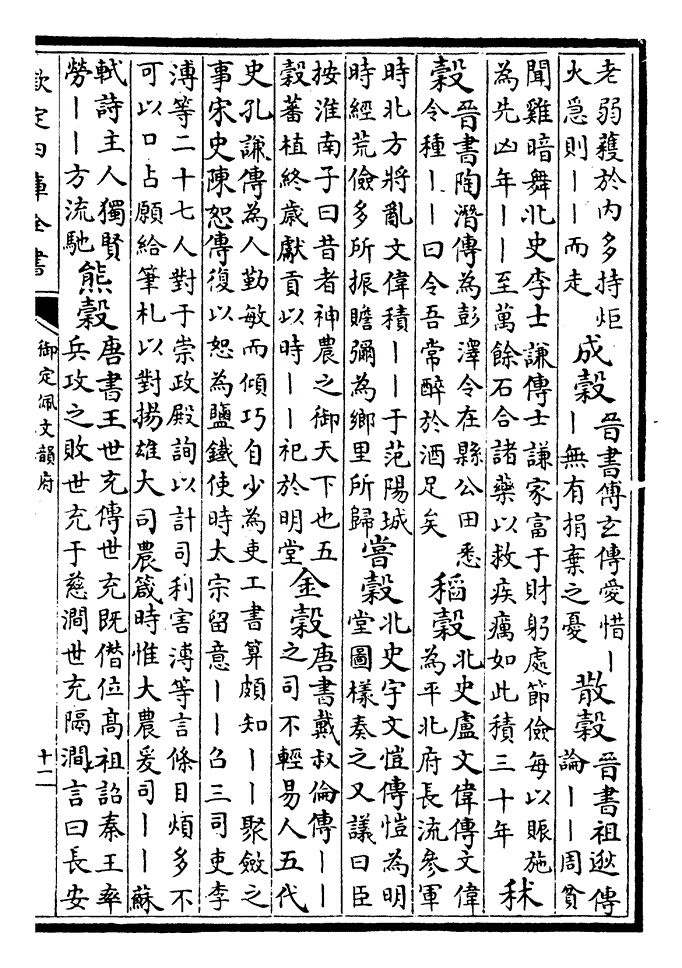 老弱穫於内多持炬
火急則丨丨而走
成穀
晉書傅玄傳愛惜丨
丨無有捐棄之憂
散穀
晉書祖逖傳
論丨丨周貧
聞雞暗舞北史李士謙傳士謙家富于財躬處節儉每以賑施
為先凶年丨丨至萬餘石合諸藥以救疾癘如此積三十年
秫
穀
晉書陶潛傳為彭澤令在縣公田悉
令種丨丨曰令吾常醉於酒足矣
稻穀
北史盧文偉傳文偉
為平北府長流參軍
時北方將亂文偉積丨丨于范陽城
時經荒儉多所振贍彌為鄉里所歸
嘗穀
北史宇文愷傳愷為明
堂圖樣奏之又議曰臣
按淮南子曰昔者神農之御天下也五
穀蕃植終歲獻貢以時丨丨祀於明堂
金穀
唐書戴叔倫傳丨丨
之司不輕易人五代
史孔謙傳為人勤敏而傾巧自少為吏工書算頗知丨丨聚斂之
事宋史陳恕傳復以恕為鹽鐵使時太宗留意丨丨召三司吏李
溥等二十七人對于崇政殿詢以計司利害溥等言條目煩多不
可以口占願給筆札以對揚雄大司農箴時惟大農爰司丨丨蘇
軾詩主人獨賢
勞丨丨方流馳
熊穀
唐書王世充傳世充既僭位髙祖詔秦王率
兵攻之敗世充于慈澗世充隔澗言曰長安
欽定四庫全書
御定佩文韻府
十一